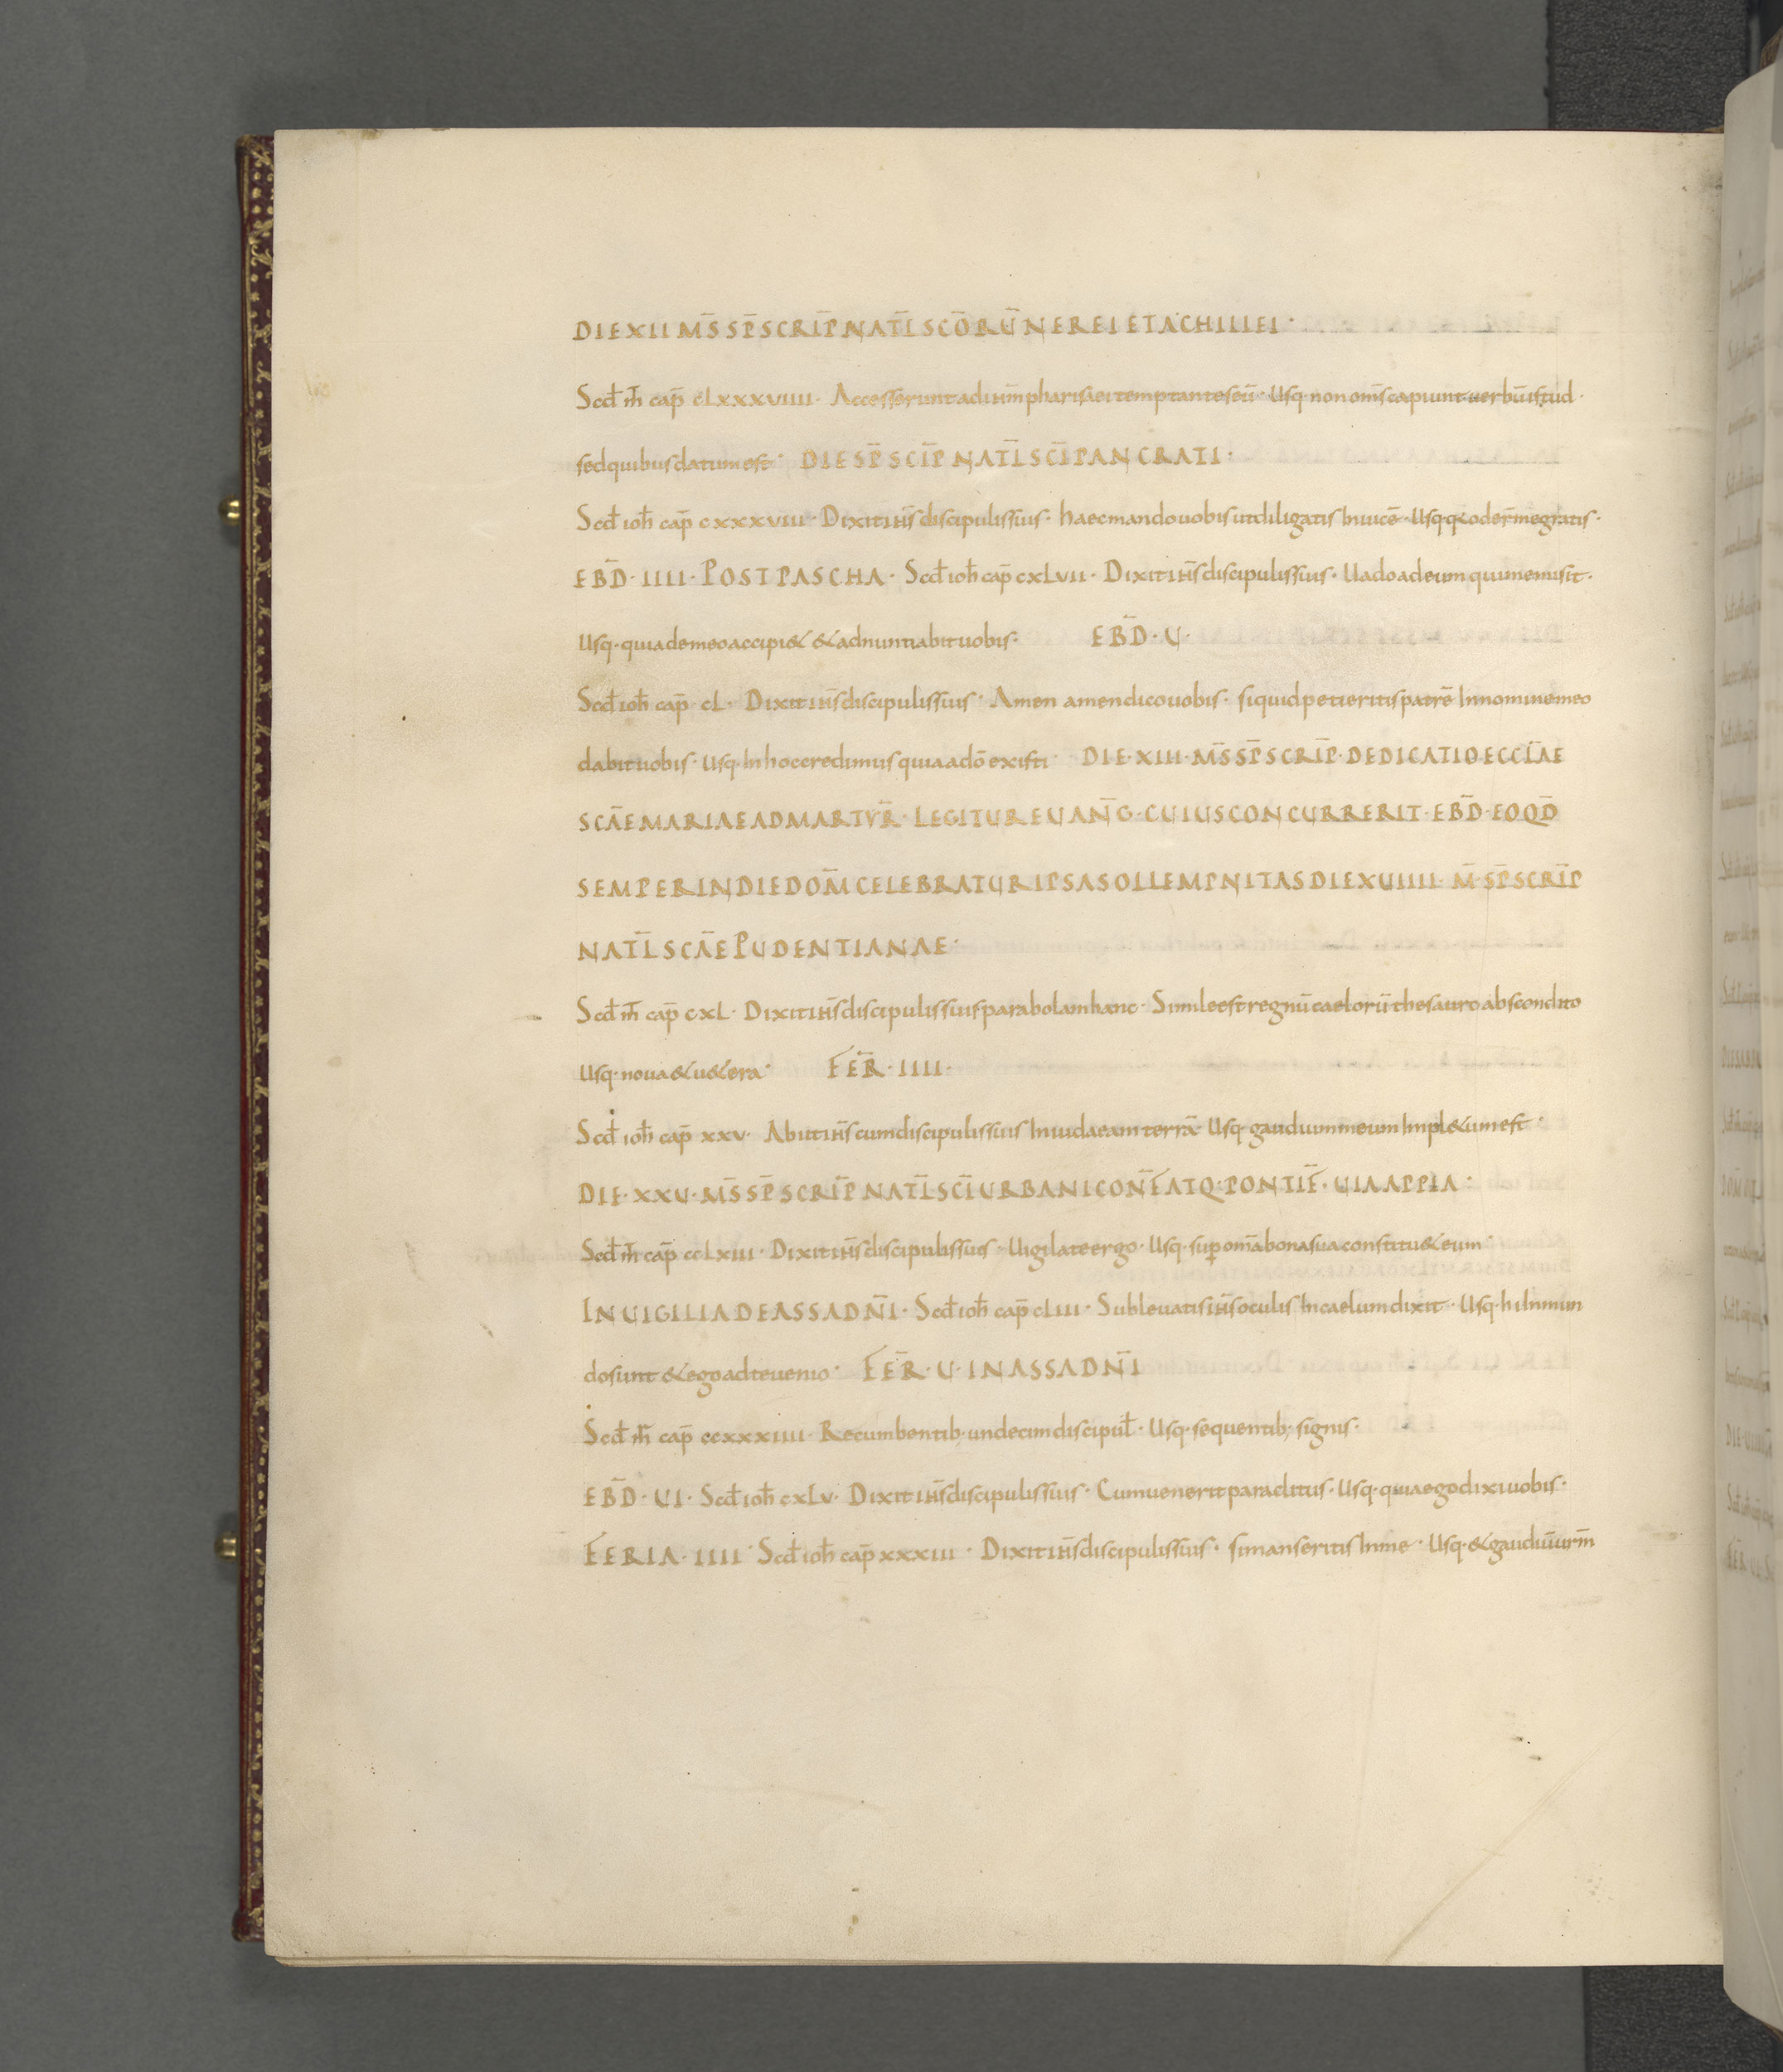 DIE XII M̄S SP̄SCRIP̄ NATL̄ SCŌRŪ NEREI ET ACHILLEI ·
Scd̄ m̄ cap̄ cLxxxviiii · Accesserunt ad ih̄m pharisaei temptantes eū · Usq· non om̄s capiunt uerbū istud ·
sed quibus datum est · DIE SP̄SCIP̄ NATL̄ SCĪ PANCRATI ·
Scd̄ ioh̄ cap̄ cxxxviii · Dixit ih̄s discipulis suis · haec mando uobis ut diligatis Inuicē · Usq· q&oder̄ me gratis ·
EBD̄ · IIII · POST PASCHA · Scd̄ ioh̄ cap̄ cxLvii · Dixit ih̄s discipulis suis · Uado ad eum qui me misit ·
Usq· quia de meo accipi& & adnuntiabit uobis · EBD̄ · U ·
Scd̄ ioh̄ cap̄ cL · Dixit ih̄s discipulis suis · Amen amen dico uobis · si quid petieritis patrē In nomine meo
dabit uobis · Usq· In hoc credimus quia a dō existi · DIE · XIII · M̄S SP̄SCRIP̄ · DEDICATIO ECCL̄AE
SCĀE MARIAE AD MARTYR̄ · LEGITUR EUANḠ · CUIUS CONCURRERIT · EBD̄ · EO QD̄
SEMPER IN DIE DOM̄ CELEBRATUR IPSA SOLLEMPNITAS DIE XUIIII · M̄ · SP̄SCRIP̄
NATL̄ SCĀE PUDENTIANAE ·
Scd̄ m̄ cap̄ cxL · Dixit ih̄s discipulis suis parabolam hanc · Simile est regnū caelorū thesauro abscondito
Usq· noua & u&era · FER̄ · IIII ·
Scd̄ ioh̄ cap̄ xxv · Abiit ih̄s cum discipulis suis In iudaeam terrā · Usq· gaudium meum Impl&um est ·
DIE · XXU · M̄S SP̄SCRIP̄ NATL̄ SCĪ URBANI CONF̄ ATQ· PONTIF̄ · UIA APPIA ·
Scd̄ m̄ cap̄ ccLxiii · Dixit ih̄s discipulis suis · Uigilate ergo · Usq· sup̱ om̄a bona sua constitu& eum ·
IN UIGILIA DE ASSA DN̄I · Scd̄ ioh̄ cap̄ cLiii · Subleuatis ih̄s oculis In caelum dixit · Usq· hi In mun
do sunt & ego ad te uenio · FER̄ · U · IN ASSA DN̄I
Scd̄ mr̄ cap̄ ccxxxiiii · Recumbentib; undecim discipul̄ · Usq· sequentib; signis ·
EBD̄ · UI · Scd̄ ioh̄ cxLv · Dixit ih̄s discipulis suis · Cum uenerit paraclitus · Usq· quia ego dixi uobis ·
FERIA · IIII · Scd̄ ioh̄ cap̄ xxxiii · Dixit ih̄s discipulis suis · si manseritis In me · Usq· & gaudiū ur̄m